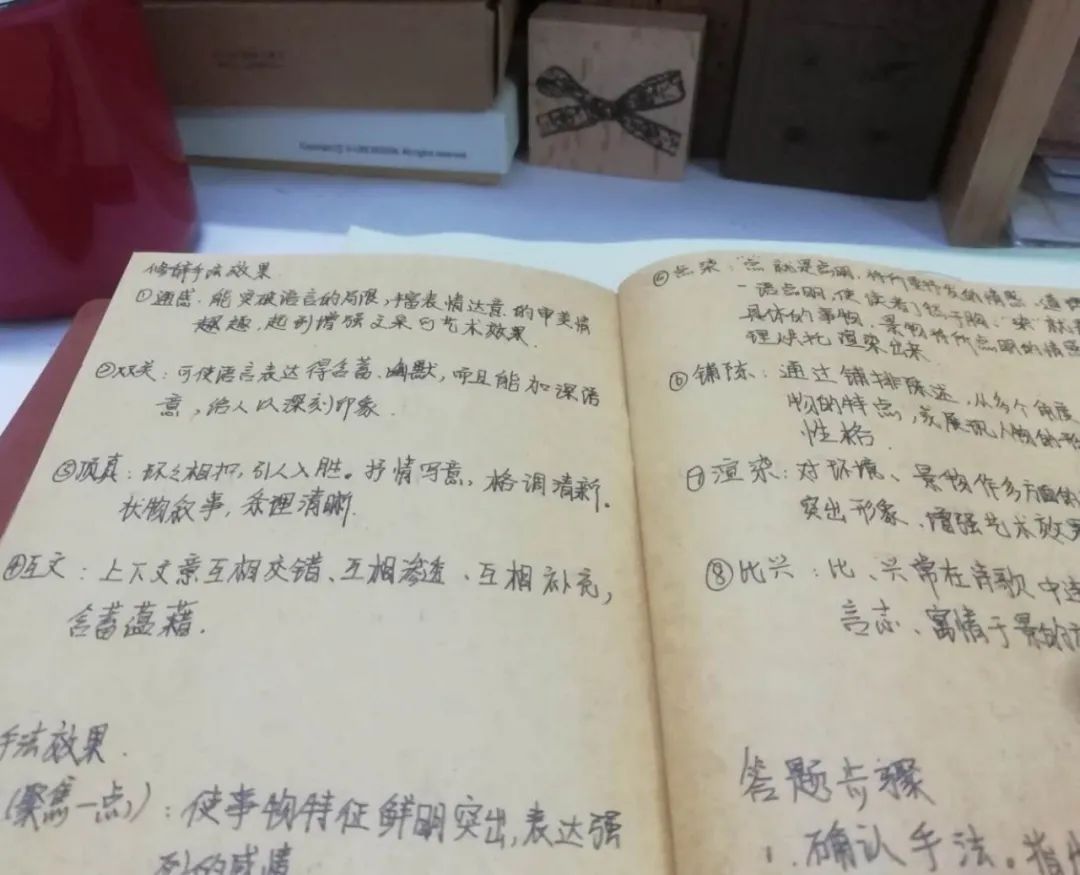 修辞手法效果
①通感：能突破语言的局限，丰富表情达意的审美情
趣，起到增强文采的艺术效果.
②双关：可使语言表达得含蓄、幽默，而且能加深语
意，给人以深刻印象.
③顶真：环环相扣，引人入胜。抒情写意，格调清新。
状物叙事，条理清晰.
④互文：上下文意互相交错、互相渗透、互相补充，
含蓄蕴藉.
手法效果.
(聚焦一点)：使事物特征鲜明突出，表达强
烈的感情
点染："点"就是点明，将所要抒发的情感、道理
一语点明，使读者了然于胸，"染"就
具体的事物、景物将所点明的情感
理烘托渲染出来
⑥铺陈：通过铺排陈述，从多个角度
物的特点，或展现人物的
性格
⑦渲染：对环境、景物作多方面的
突出形象、增强艺术效果
⑧比兴：比、兴常在诗歌中连
言志、寓情于景的方
答题步骤
1.确认手法。指出